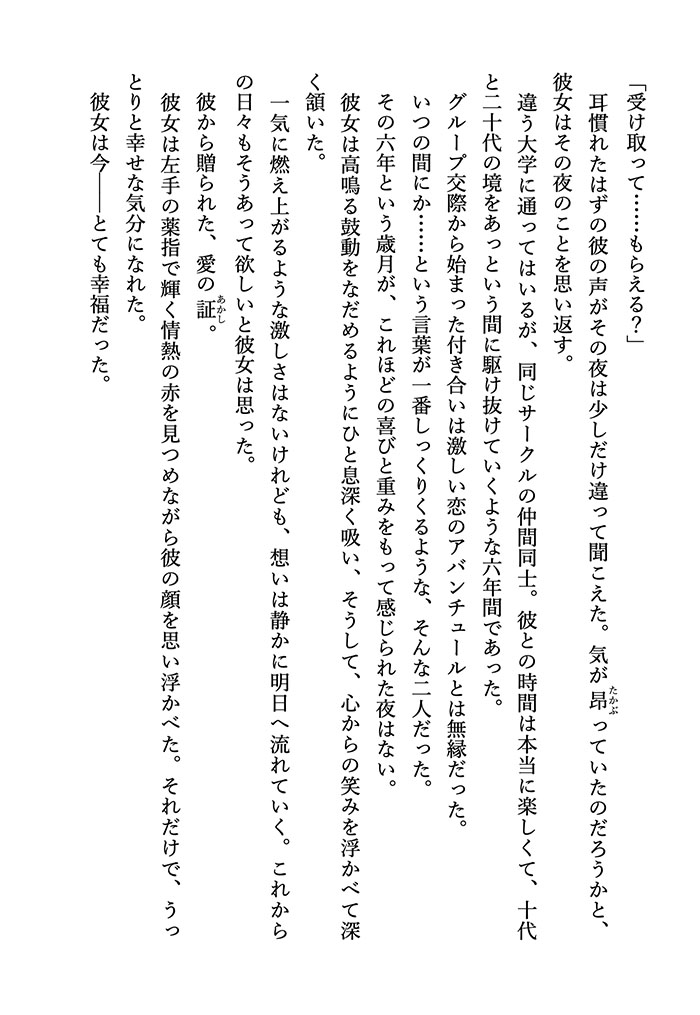 「受け取って……もらえる？」
耳慣れたはずの彼の声がその夜は少しだけ違って聞こえた。気が昂っていたのだろうかと、
彼女はその夜のことを思い返す。
違う大学に通ってはいるが、同じサークルの仲間同士。彼との時間は本当に楽しくて、十代
と二十代の境をあっという間に駆け抜けていくような六年間であった。
グループ交際から始まった付き合いは激しい恋のアバンチュールとは無縁だった。
いつの間にか……という言葉が一番しっくりくるような、そんな二人だった。
その六年という歳月が、これほどの喜びと重みをもって感じられた夜はない。
彼女は高鳴る鼓動をなだめるようにひと息深く吸い、そうして、心からの笑みを浮かべて深
く頷いた。
一気に燃え上がるような激しさはないけれども、想いは静かに明日へ流れていく。これから
の日々もそうあって欲しいと彼女は思った。
彼から贈られた、愛の証。
彼女は左手の薬指で輝く情熱の赤を見つめながら彼の顔を思い浮かべた。それだけで、うっ
とりと幸せな気分になれた。
彼女は今――とても幸福だった。
たかぶ
あかし